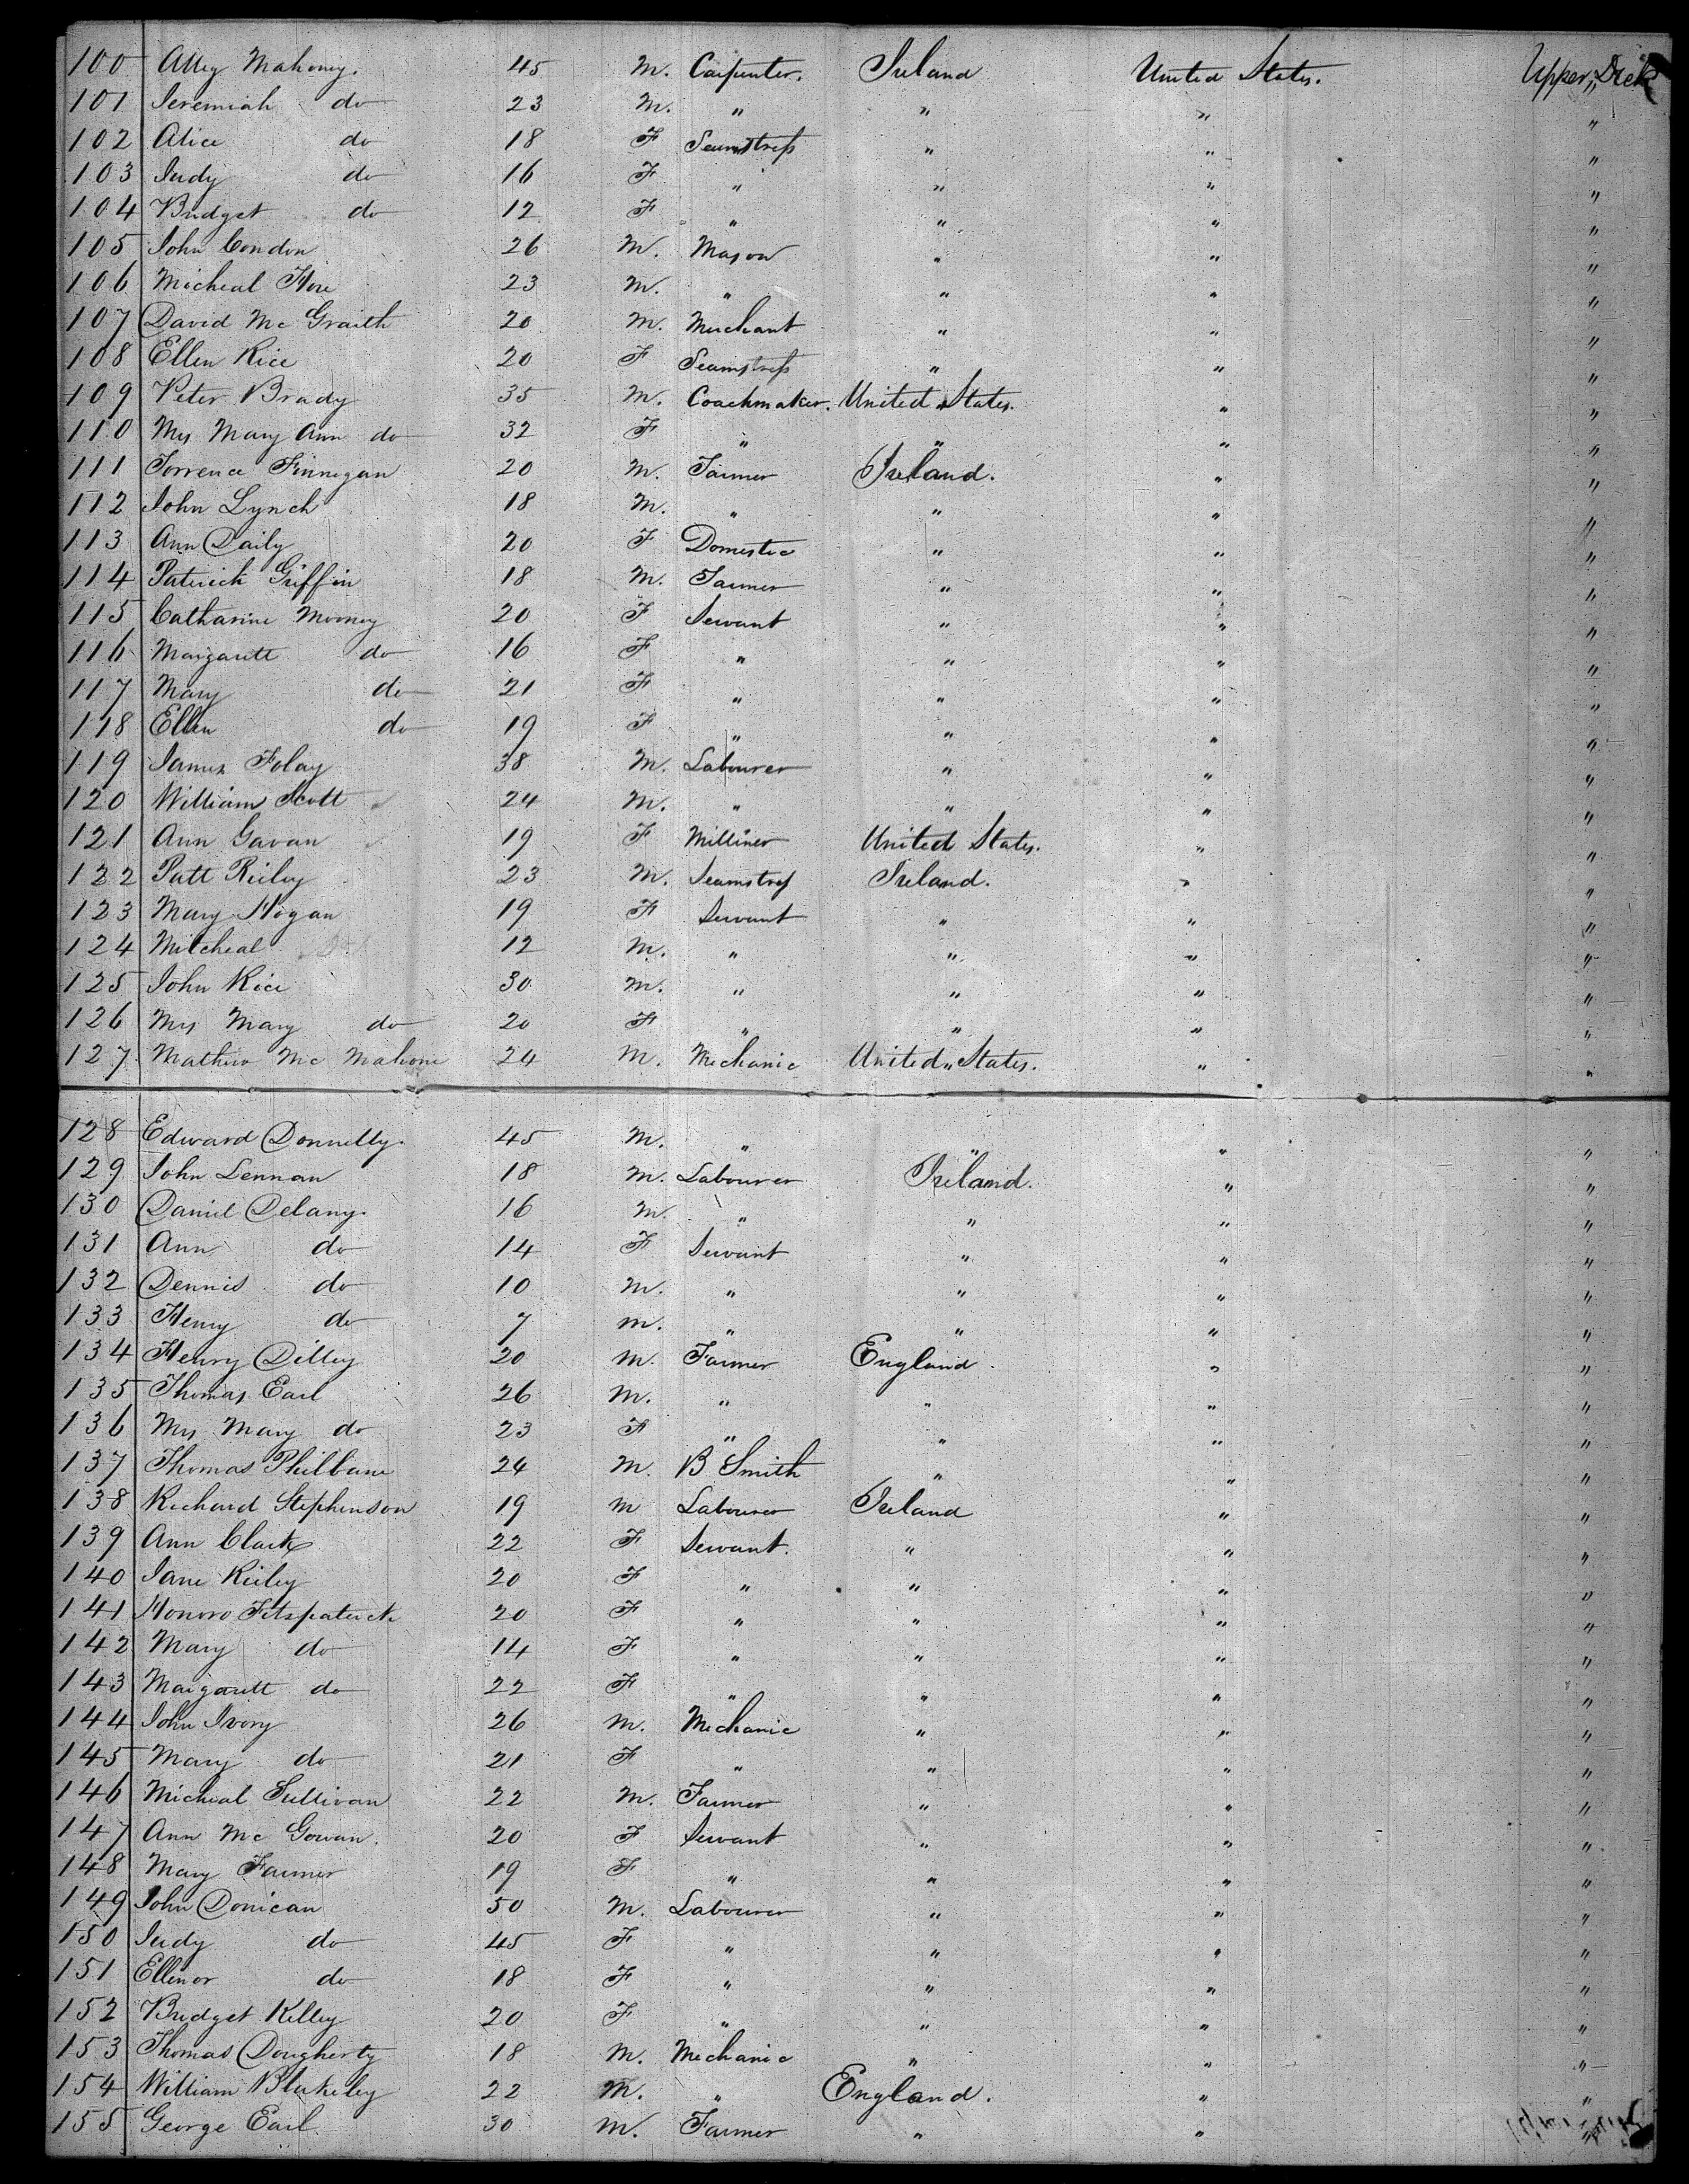 100 Alley Mahoney. 45 M. Carpenter. Ireland United States. Upper Deck
101 Jeremiah do 23 M. " " " "
102 Alice do 18 F Seamstress " " "
103 Judy do 16 F " " " "
104 Bridget do 12 F " " " "
105 John Condon 26 M. Mason " " "
106 Micheal Hore 23 M. " " " "
107 David Mc Graith 20 M. Merchant " " "
108 Ellen Rice 20 F Seamstress " " "
109 Peter Brady 35 M. Coachmaker. United States. " "
110 Mrs Mary Ann do 32 F " " " "
111 Torrence Finnegan 20 M. Farmer Ireland. " "
112 John Lynch 18 M. " " " "
113 Ann Daily 20 F Domestic " " "
114 Patrick Griffin 18 M. Farmer " " "
115 Catharine Mooney 20 F Servant " " "
116 Margarett do 16 F " " " "
117 Mary do 21 F " " " "
118 Ellen do 19 F " " " "
119 James Folay 38 M. Labourer " " "
120 William Scott 24 M. " " " "
121 Ann Gavan 19 F Milliner United States. " "
122 Patt Reiley 23 M. Seamstress Ireland. " "
123 Mary Hogan 19 F Servant " " "
124 Mitcheal 12 M. " " " "
125 John Rice 30 M. " " " "
126 Mrs Mary do 20 F " " " "
127 Mathew Mc Mahone 24 M. Mechanic United States. " "
128 Edward Donnelly. 45 M. " " " "
129 John Lennan 18 M. Labourer Ireland. " "
130 Daniel Delany. 16 M. " " " "
131 Ann do 14 F Servant " " "
132 Dennis do 10 M. " " " "
133 Henry do 7 M. " " " "
134 Henry Dilley 20 M. Farmer England " "
135 Thomas Earl 26 M. " " " "
136 Mrs Mary do 23 F " " " "
137 Thomas Philbane 24 M. B Smith " " "
138 Richard Stephenson 19 M Labourer Ireland " "
139 Ann Clark 22 F Servant. " " "
140 Jane Reiley 20 F " " " "
141 Honoro Fitspatrick 20 F " " " "
142 Mary do 14 F " " " "
143 Margarett do 22 F " " " "
144 John Ivory 26 M. Mechanic " " "
145 Mary do 21 F " " " "
146 Micheal Sullivan 22 M. Farmer " " "
147 Ann Mc Gowan. 20 F Servant " " "
148 Mary Farmer 19 F " " " "
149 John Donican 50 M. Labourer " " "
150 Judy do 45 F " " " "
151 Ellenor do 18 F " " " "
152 Bridget Kelley 20 F " " " "
153 Thomas Dougherty 18 M. Mechanic " " "
154 William Blakeley 22 M. " England. " "
155 George Earl. 30 M. Farmer " " "